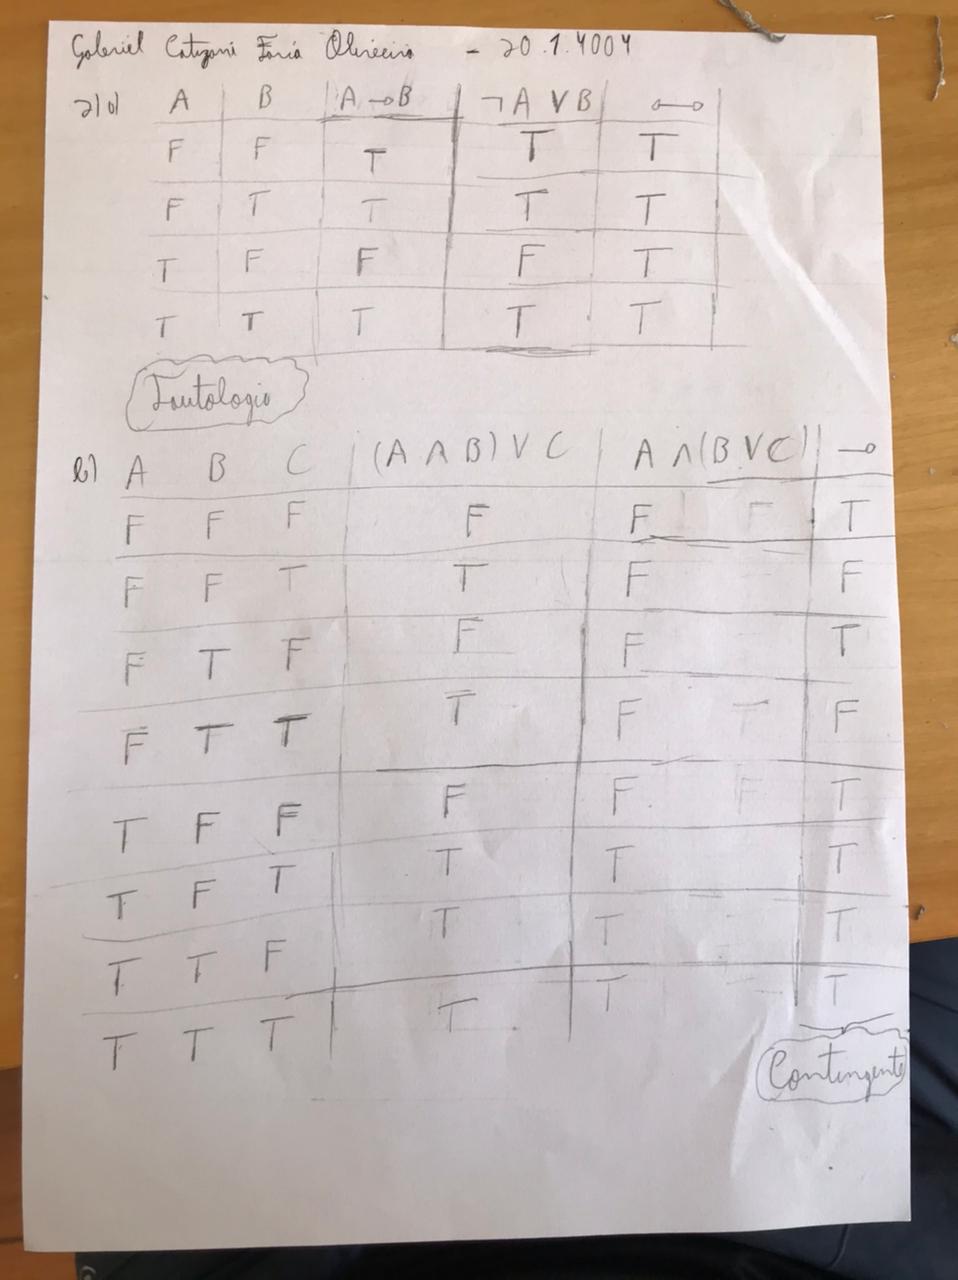 Gabriel Catizani Faria Oliveira - 20.1.4004
2) a) A B A → B ¬A ∨ B ↔
F F T T T
F T T T T
T F F F T
T T T T T
Tautologia
b) A B C (A ∧ B) ∨ C A ∧ (B ∨ C) →
F F F F F F T
F F T T F F
F T F F F T
F T T T F T F
T F F F F F T
T F T T T T
T T F T T T
T T T T T T
Contingente